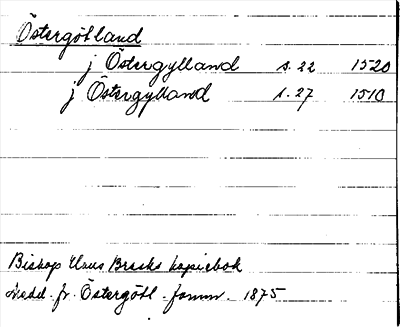 Östergötland
j Östergylland s. 22 1520
j Östergylland s. 27 1510
Biskop Hans Brasks kopiebok
Medd. fr. Östergötl. fornm. 1875